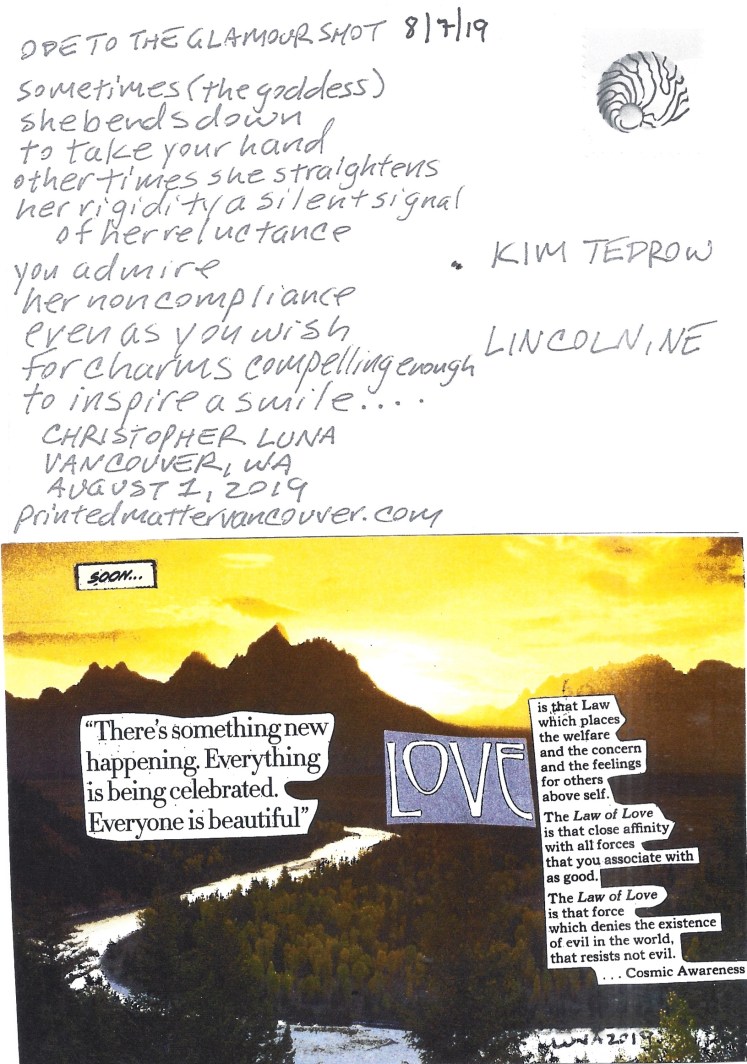 ODE TO THE GLAMOUR SHOT 8/7/19
sometimes (the goddess)
she bends down
to take your hand
other times she straightens
her rigidity a silent signal
of her reluctance
you admire
her noncompliance
even as you wish
for charms compelling enough
to inspire a smile....
CHRISTOPHER LUNA
VANCOUVER, WA
AUGUST 1, 2019
printedmattervancouver.com
KIM TEDROW
LINCOLN, NE
SOON...
"There's something new
happening. Everything
is being celebrated.
Everyone is beautiful"
LOVE
is that Law
which places
the welfare
and the concern
and the feelings
for others
above self.
The Law of Love
is that close affinity
with all forces
that you associate with
as good.
The Law of Love
is that force
which denies the existence
of evil in the world,
that resists not evil.
... Cosmic Awareness
LUNA 2019